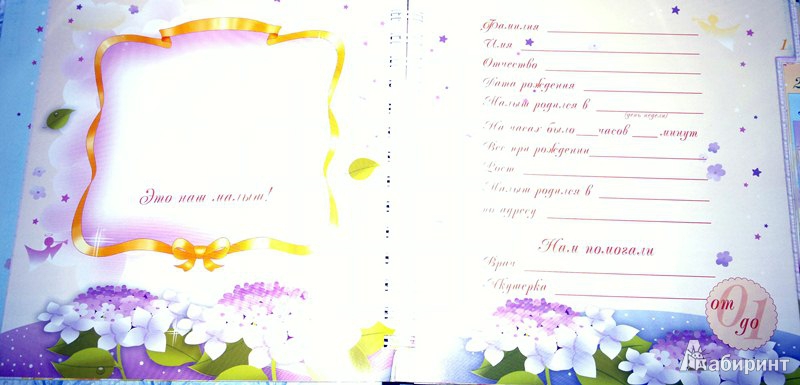 Это наш малыш!
Фамилия
Имя
Отчество
Дата рождения
Малыш родился в
(день недели)
На часах было часов минут
Вес при рождении
Рост
Малыш родился в
по адресу
Нам помогали
Врач
Акушерка
от 0
до 1
1
2
Лабиринт